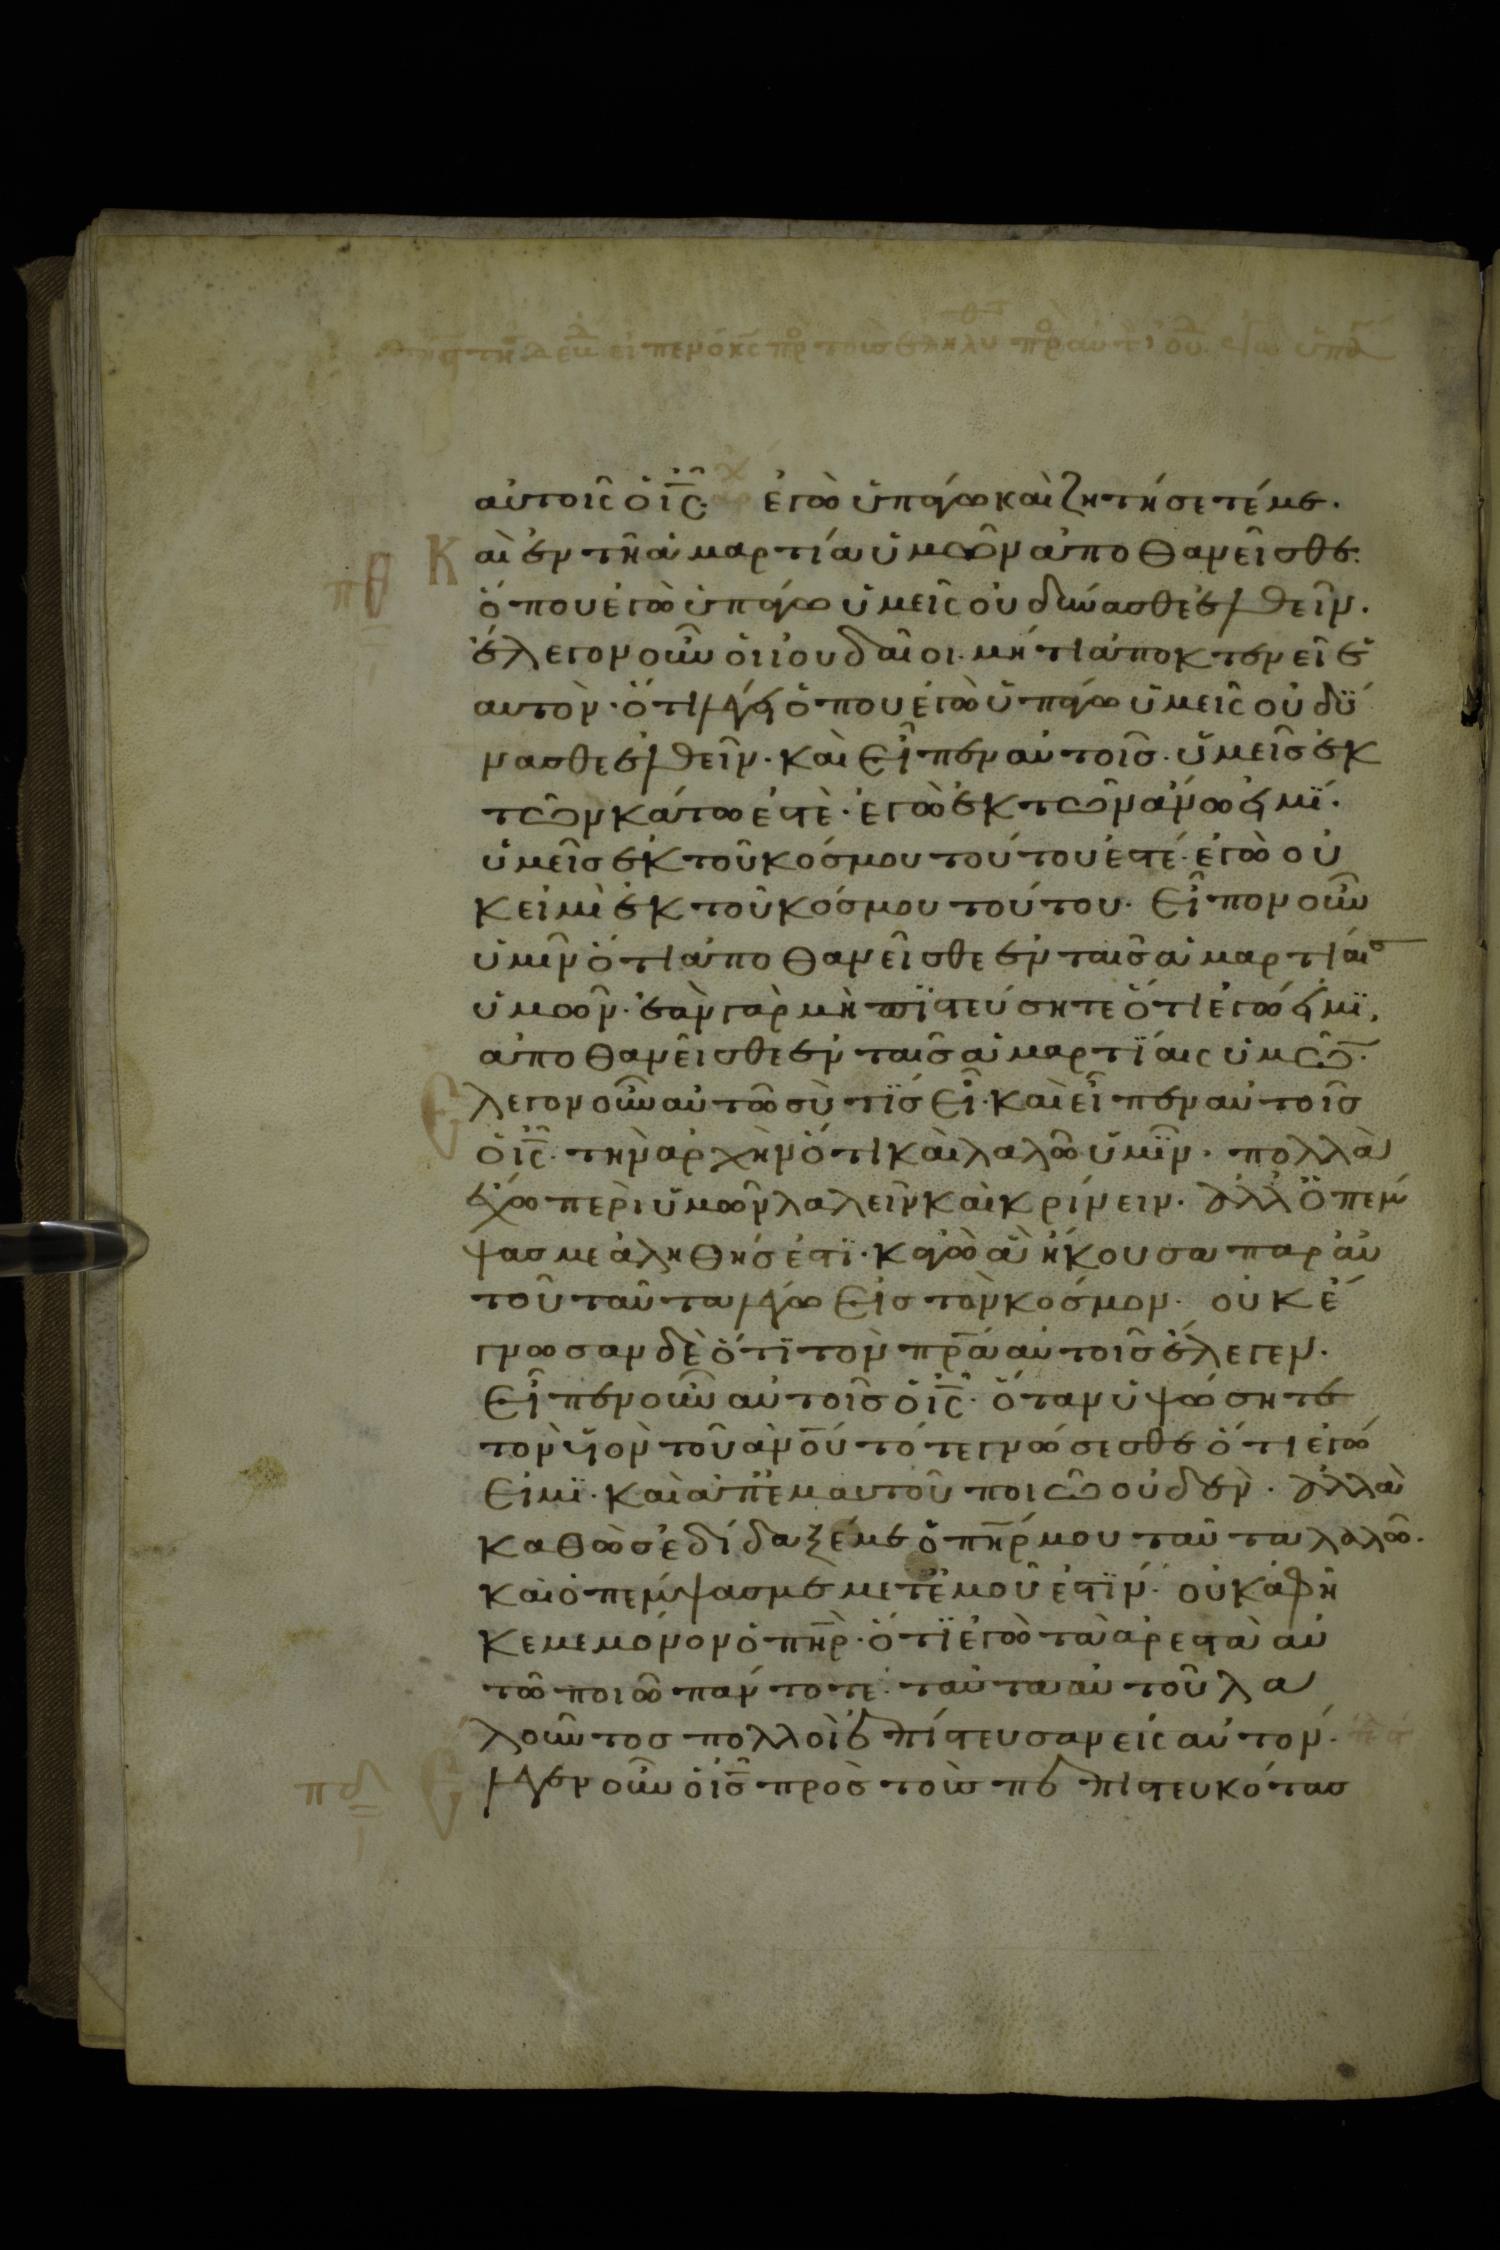 αὐτοῖς ὁ ἰς̅· ἐγὼ ὑπάγω καὶ ζητήσετέ με·
Καὶ ἐν τῆ ἁμαρτία ὑμῶν ἀποθανεῖσθε·
πθ
ὅπου ἐγὼ ὑπάγω ὑμεῖς οὐ δύνασθε ἐλθεῖν·
ἔλεγον οὖν ὁι ἰουδαῖοι· μήτι ἀποκτενεῖ ἑ
αυτὸν· ὅτι λέγει ὅπου ἐγὼ ὑπάγω ὑμεῖς οὐ δύ
νασθε ἐλθεῖν· καὶ εἶπεν αὐτοῖς· ὑμεῖς ἐκ
τῶν κάτω ἐστὲ· ἐγὼ ἐκ τῶν ἄνω εἰμί·
ὑμεῖς ἐκ τοῦ κόσμου τούτου ἐστέ· ἐγὼ οὐ
κ εἰμὶ ἐκ τοῦ κόσμου τούτου· εἶπον οὖν
ὑμῖν ὅτι ἀποθανεῖσθε ἐν ταῖς ἁμαρτίαις
ὑμῶν· ἐὰν γὰρ μὴ πιστεύσητε ὅτι ἐγώ εἰμϊ,
ἀποθανεῖσθε ἐν ταῖς ἁμαρτίαις ὑμῶν·
Ἔλεγον οὖν αὐτῶ σὺ τίς εἶ· καὶ εἶπεν αὐτοῖς
ὁ ἰς̅· τὴν ἀρχὴν ὅτι καὶ λαλῶ ὑμῖν· πολλὰ
ἔχω περὶ ὑμῶν λαλεῖν καὶ κρίνειν· ἀλλ' ὁ πέμ
ψας με ἀληθής ἐστϊ· κἀγὼ ἃ ἤκουσα παρ' αὐ
τοῦ ταῦτα λέγω εἰς τὸν κόσμον· οὐκ ἔ
γνωσαν δὲ ὅτι τὸν πρ̅α αὐτοῖς ἔλεγεν·
εἶπεν οὖν αὐτοῖς ὁ ἰς̅· ὅταν ὑψώσητε
τὸν υἱὸν τοῦ ἀν̅ου τότε γνώσεσθε ὅτι ἐγώ
εἰμϊ· καὶ ἀπ' ἐμαυτοῦ ποιῶ οὐδὲν· ἀλλὰ
καθὼς ἐδίδαξέ με ὁ πη̅ρ μου ταῦτα λαλῶ·
καὶ ὁ πέμψας με μετ' ἐμοῦ ἐστϊν· οὐκ ἀφῆ
κέ με μόνον ὁ πη̅ρ· ὅτϊ ἐγὼ τὰ ἀρεστὰ αὐ
τῶ ποιῶ πάντοτε· ταῦτα αὐτοῦ λα
λοῦντος πολλοὶ ἐπίστευσαν εἰς αὐτόν·
πδ
Ἔλεγεν οὖν ὁ ἰς̅ πρὸς τοὺς πεπιστευκότας